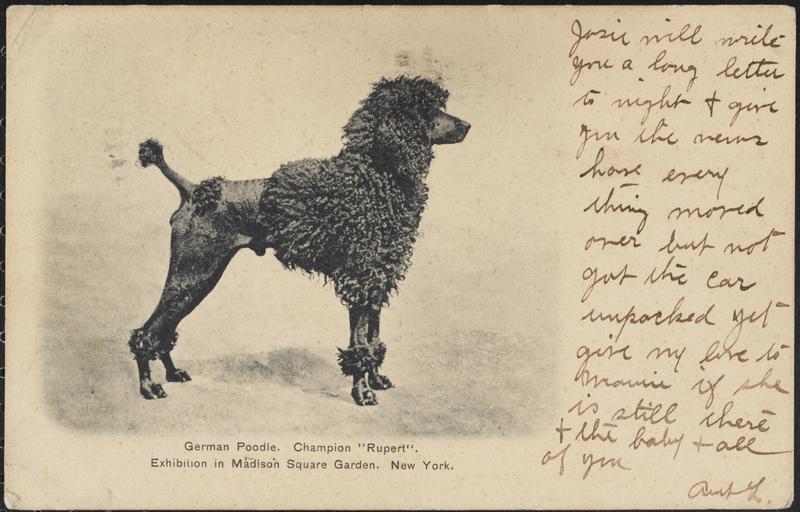 German Poodle. Champion "Rupert".
Exhibition in Madison Square Garden. New York.
Josie will write
you a long letter
to night + give
you the news
have every
thing moved
over but not
got the car
unpacked yet
give my love to
Mamie if she
is still there
+ the baby + all
of you
Aunt L.